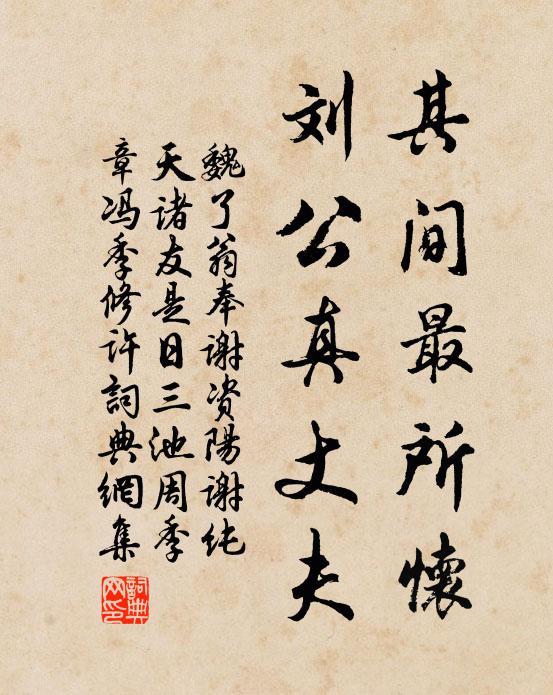 其间最所懷
刘公真丈夫
魏了翁奉谢资陽谢纯
天诸友是日三池周季
章冯季修许詞典網集
詞典
网印